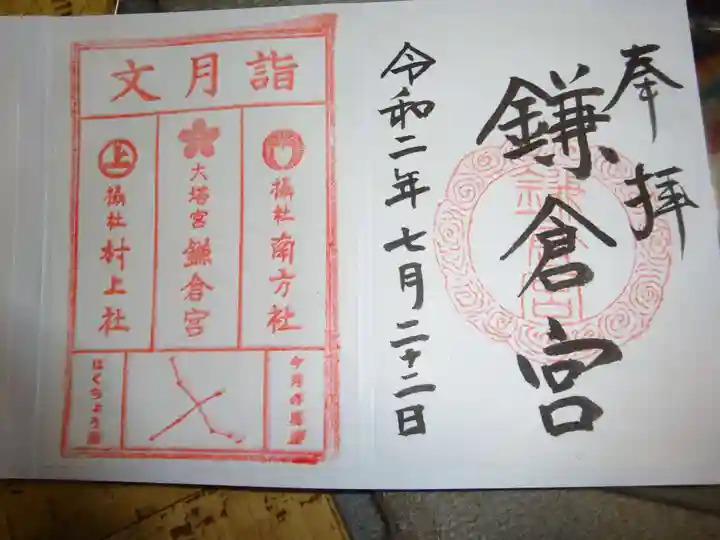 奉拝
鎌倉宮
鎌倉宮
令和二年七月二十二日
文月詣
摂社 南方社
大塔宮 鎌倉宮
上
摂社 村上社
今月の星座
はくちょう座